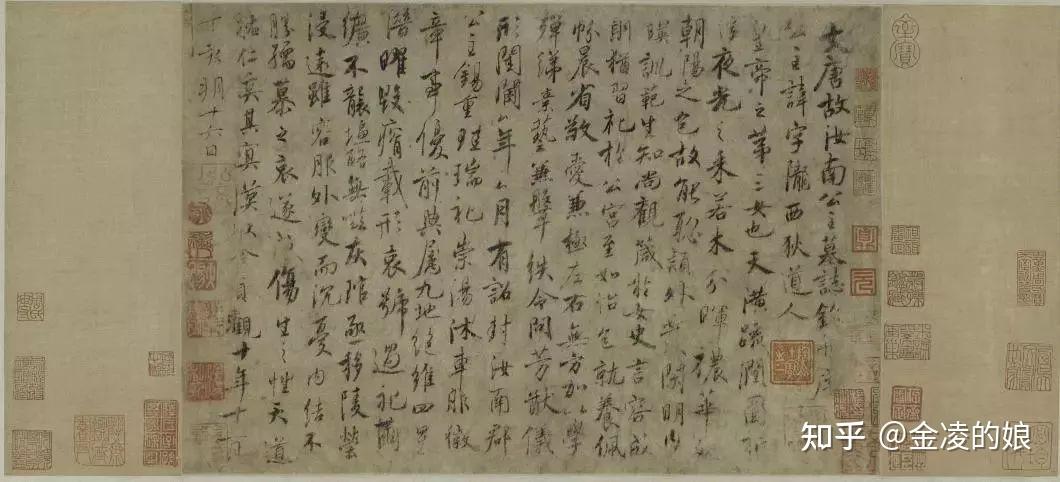 大唐故汝南公主墓誌銘并序
公主諱字隴西狄道人
皇帝之第三女也天潢疏潤圓折
浮夜光之采若木分暉穠華照
朝陽之色故能聡穎外發閑明內
暎訓範生知尚觀箴於女史言容成
則猶習礼於公宮至如怡色就養佩
帉晨省敬愛兼極左右無方加以學
殫綈素藝兼鞶紩令問芳猷儀
形閨閫年月有詔封汝南郡
公主錫重珪瑞礼崇湯沐車服徽
章事優前典屬九地絕維四星
潛曜毀瘠載形哀號過礼繭
纊不襲鹽酪無嗞灰琯亟移陵塋
浸遠雖容服外變而沉憂內結不
勝孺慕之哀遂成傷生之性天道
祐仁奚其冥漠以今貞觀十年十一月
丁亥朔十六日
知乎 @金凌的娘